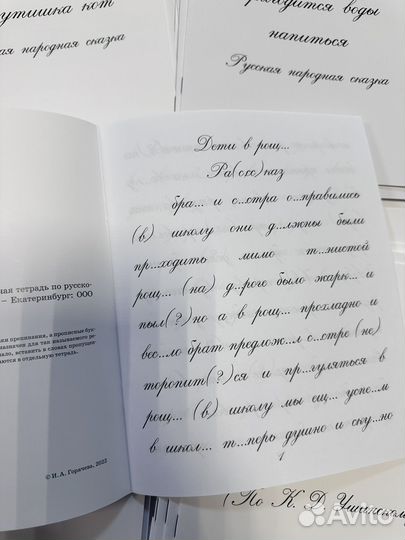 утишка кот
ая народная сказка
воды
напиться
Русская народная сказка
Дети в рощ...
Ра(сс)каз
бра... и с...стра о...правились
(в) школу они д...лжны были
пр...ходить мимо т...нистой
рощ... (на) д...роге было жарк... и
пыл(?)но а в рощ... прохладно и
вес...ло брат предлож...л с...стре (не)
торопит(?)ся и пр...гуляться в
рощ... (в) школу мы ещ... успе...м
в школ... т...перь душно и ску...но
1
ная тетрадь по русско-
– Екатеринбург: ООО
ки препинания, а прописные бук-
назначен для так называемого ре-
вало, вставить в словах пропуще-
аются в отдельную тетрадь.
© И. А. Горячева, 2022
(По К. Д. Ушинскому
Avito